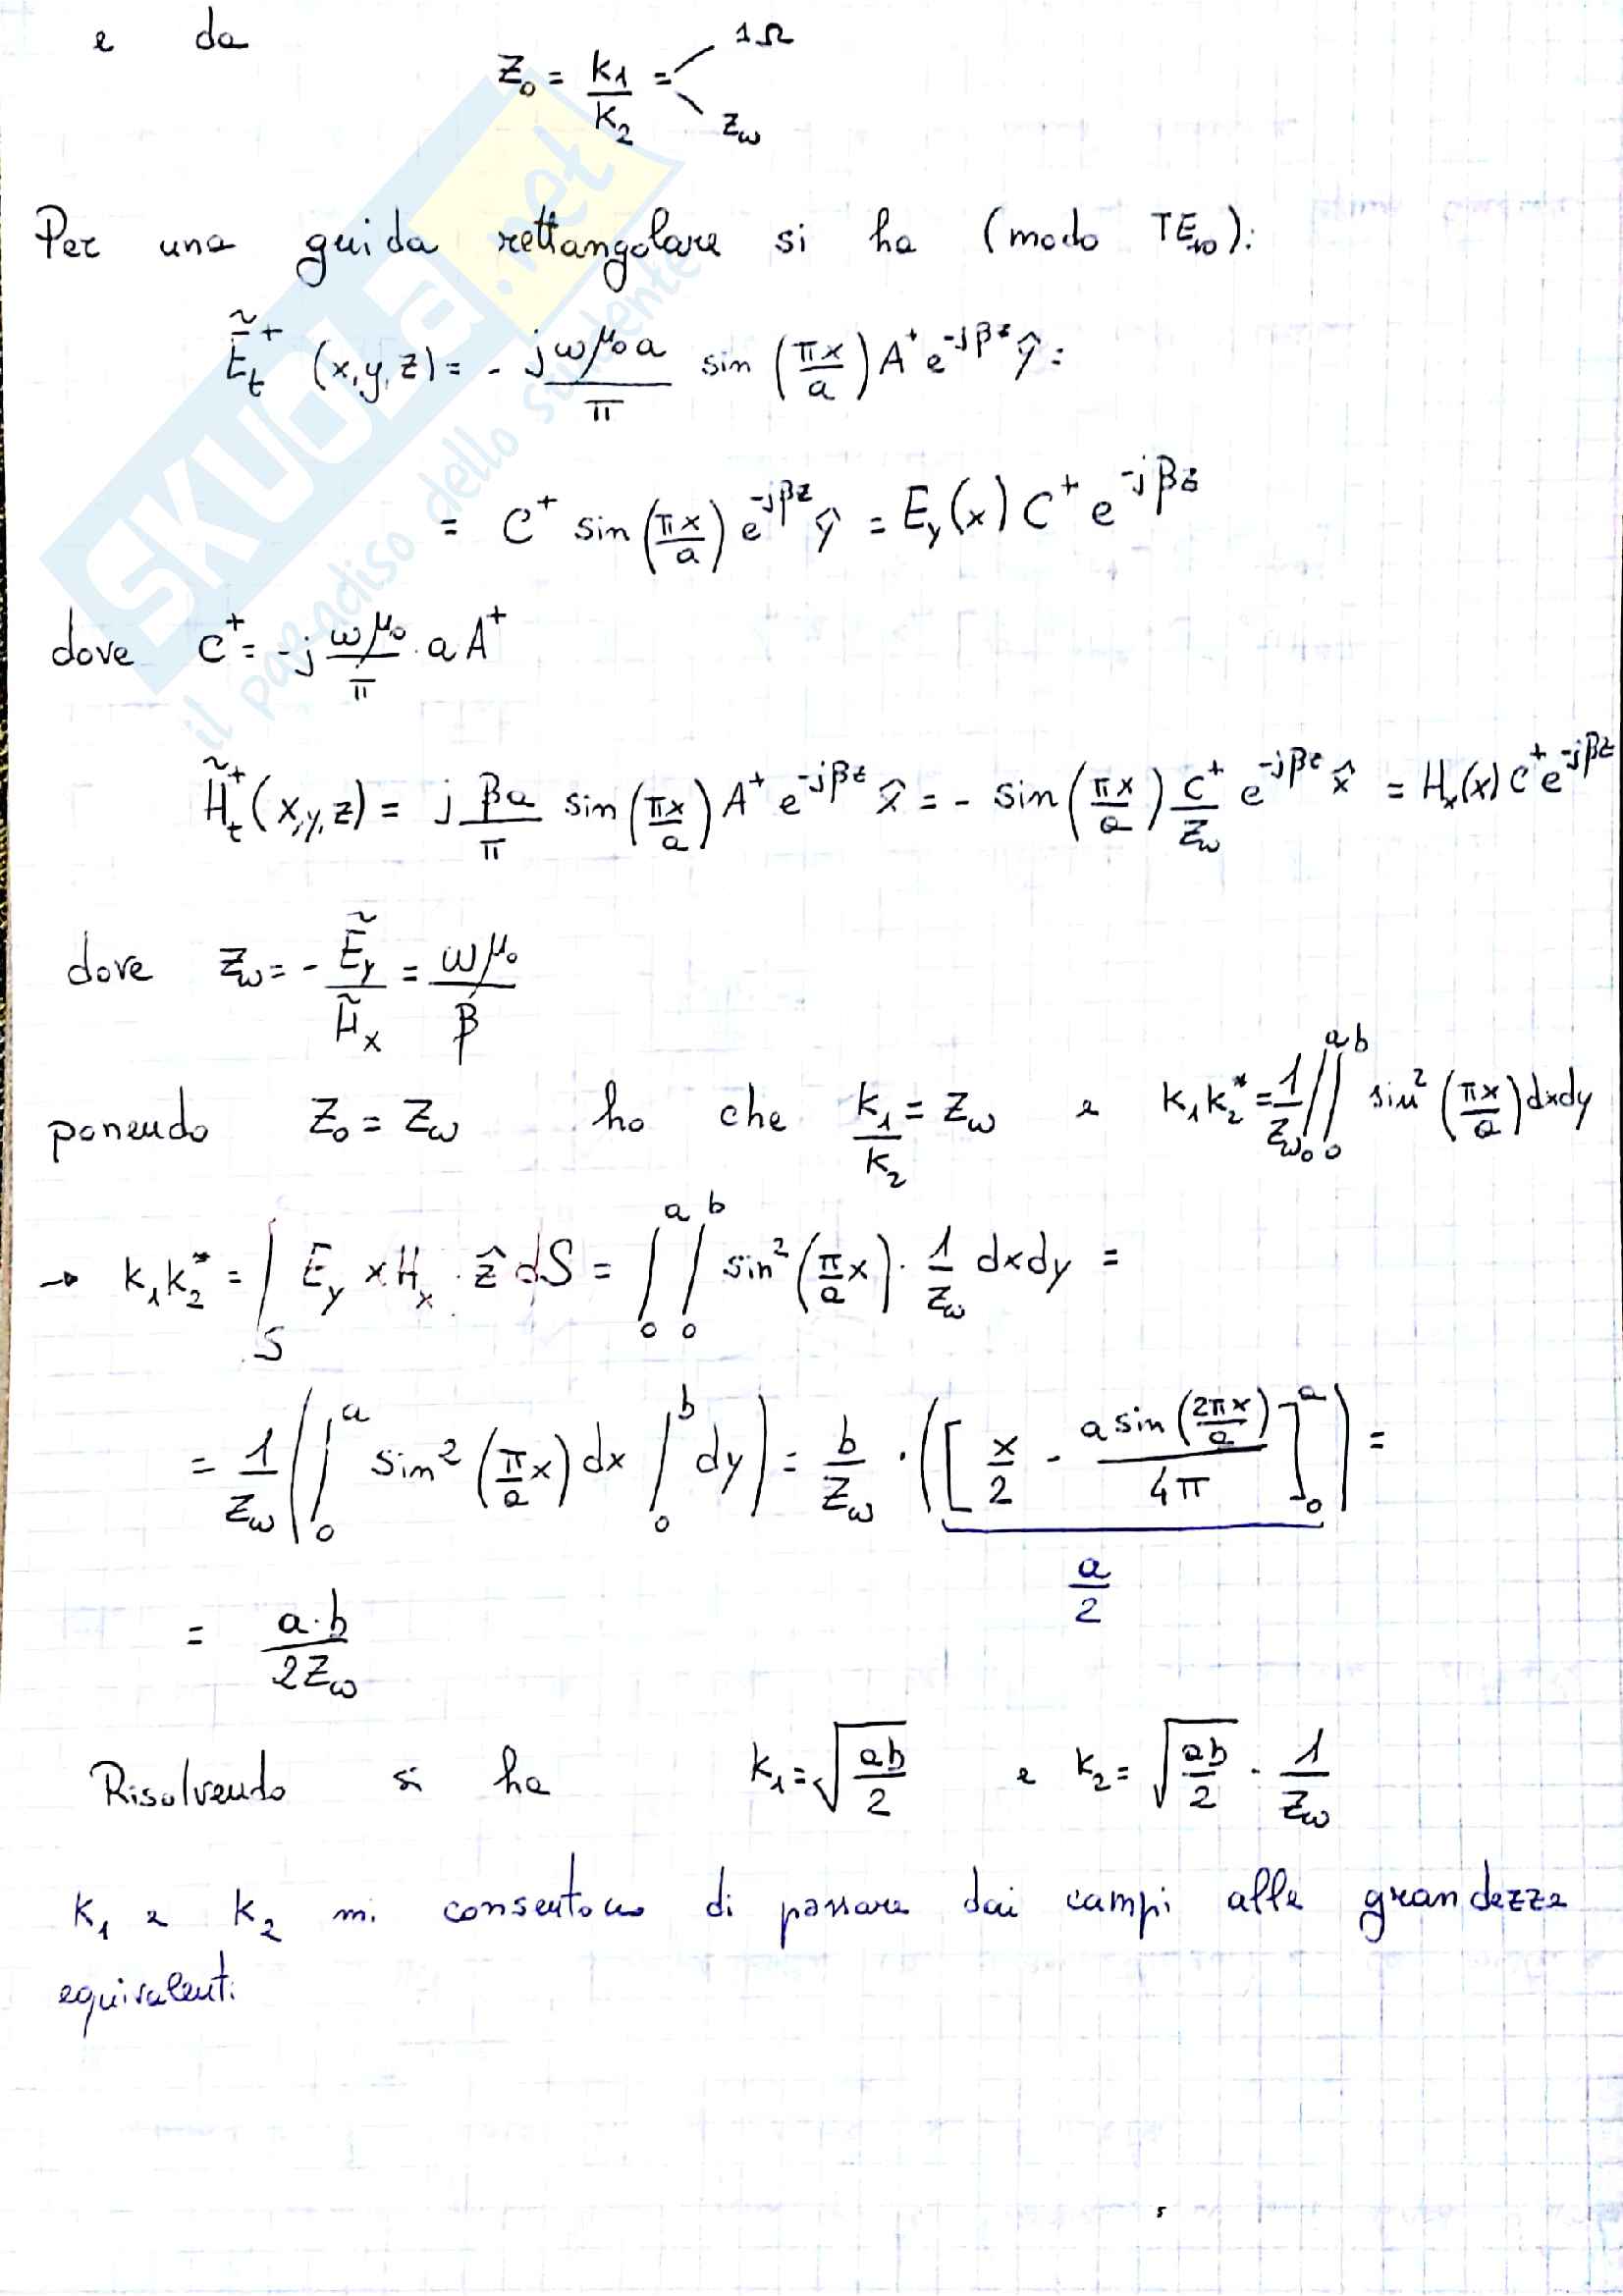 e da Z₀ = k₁/k₂ = 1Ω
Zω
Per una guida rettangolare si ha (modo TE₁₀):
Ẽₜ⁺ (x,y,z) = - jωμ₀a/π sin (πx/a) A⁺ e^-jβz ŷ =
= C⁺ sin (πx/a) e^-jβz ŷ = Ey(x) C⁺ e^-jβz
dove C⁺ = -j ωμ₀/π · a A⁺
H̃ₜ⁺ (x,y,z) = j βa/π sin (πx/a) A⁺ e^-jβz x̂ = - sin (πx/a) C⁺/Zω e^-jβz x̂ = Hx(x) C⁺ e^-jβz
dove Zω = - Ẽy/H̃x = ωμ₀/β
ponendo Z₀ = Zω ho che k₁/k₂ = Zω e k₁k₂* = 1/Zω ∫₀^a ∫₀^b sin² (πx/a) dxdy
→ k₁k₂* = ∫S Ey x Hx · ẑ dS = ∫₀^a ∫₀^b sin² (π/a x) · 1/Zω dxdy =
= 1/Zω (∫₀^a sin² (π/a x) dx ∫₀^b dy) = b/Zω · ([x/2 - a sin (2πx/a)/4π]₀^a) =
a/2
= a·b/2Zω
Risolvendo si ha k₁ = √(ab/2) e k₂ = √(ab/2) · 1/Zω
k₁ e k₂ mi consentono di passare dai campi alle grandezze
equivalenti
SKUOLA.net
il paradiso dello studente